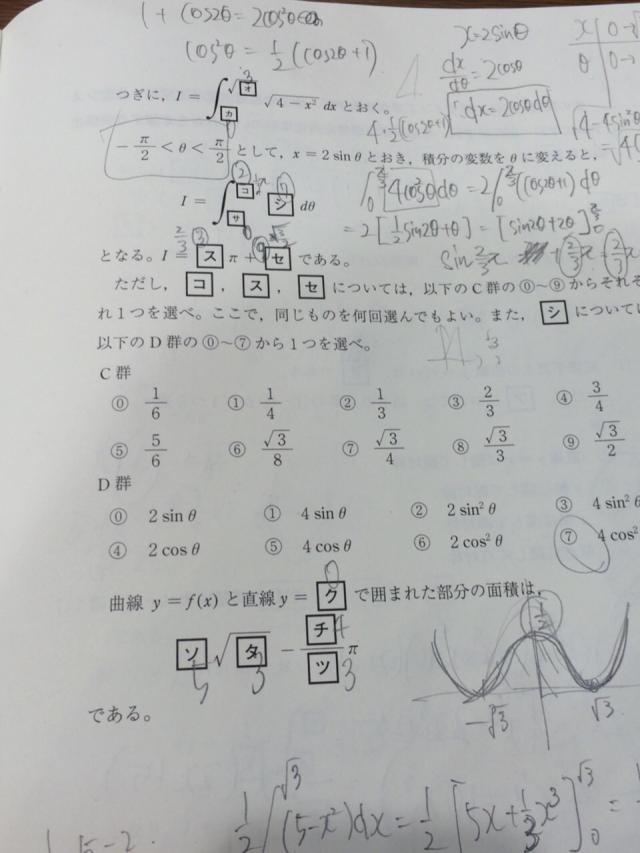 1 + cos2θ = 2cos²θ
cos²θ = 1/2 (cos2θ+1)
x=2sinθ
dx/dθ = 2cosθ
dx=2cosθdθ
x 0→√3
θ
4・1/2(cos2θ+1)
つぎに, I = ∫[カ, √オ] √(4−x²) dx とおく。
−π/2 < θ < π/2 として, x = 2 sin θ とおき, 積分の変数を θ に変えると,
I = ∫[サ, コπ] シ dθ
4cos²θ dθ = 2∫ (cos2θ+1) dθ
= 2[1/2 sin2θ+θ] = [sin2θ+2θ]
となる。I = ス π + セ である。
sin 2/3 π
ただし, コ, ス, セ については, 以下の C 群の ⓪〜⑨ からそれぞ
れ 1 つを選べ。ここで, 同じものを何回選んでもよい。また, シ につい��は
以下の D 群の ⓪〜⑦ から 1 つを選べ。
C 群
⓪ 1/6 ① 1/4 ② 1/3 ③ 2/3 ④ 3/4
⑤ 5/6 ⑥ √3/8 ⑦ √3/4 ⑧ √3/3 ⑨ √3/2
D 群
⓪ 2 sin θ ① 4 sin θ ② 2 sin² θ ③ 4 sin² θ
④ 2 cos θ ⑤ 4 cos θ ⑥ 2 cos² θ ⑦ 4 cos²
曲線 y = f(x) と直線 y = ク で囲まれた部分の面積は,
ソ √タ − チ/ツ π
5 3 4 3
−√3 √3
である。
1/2 ∫ √3 (5−x²)dx = 1/2 [5x+1/3 x³] √3 0 =